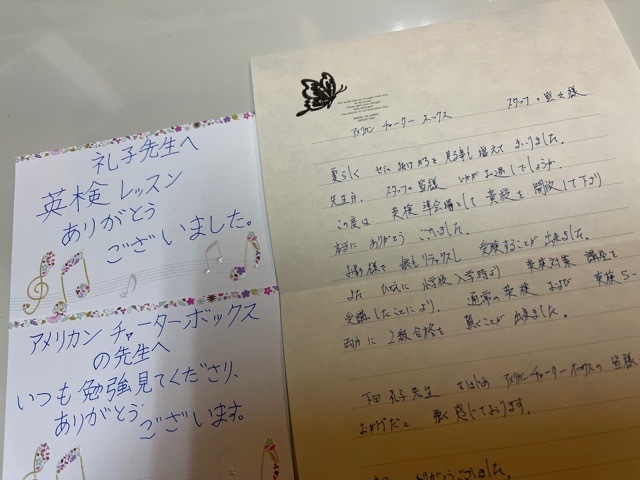 礼子先生へ
英検 レッスン
ありがとう
ございました。
アメリカン チャーター ボックス
の先生へ
いつも 勉強 見てくださり、
ありがとう ございます。
アメリカン チャーター ボックス スタッフの皆さま様
夏らしく せみの鳴け声を 見る事も 増えて まいりました。
先生方、スタッフの皆様 いかがお過ごしでしょうか。
この度は 英検 準会場として 貴校を 開放して下さり
本当に ありがとう ございました。
お陰様で 娘もリラックスし 受験することが 出来ました。
また ひとえに 小学校入学時より 英検対策 講座を
受講したことにより、通常の英検 および 英検S-
両方に 2級合格を 頂くことが 出来ました。
下田 礼子先生 ではじめ アメリカンチャーターボックスの皆様
おかげだと 感じております。
ありがとうございました。